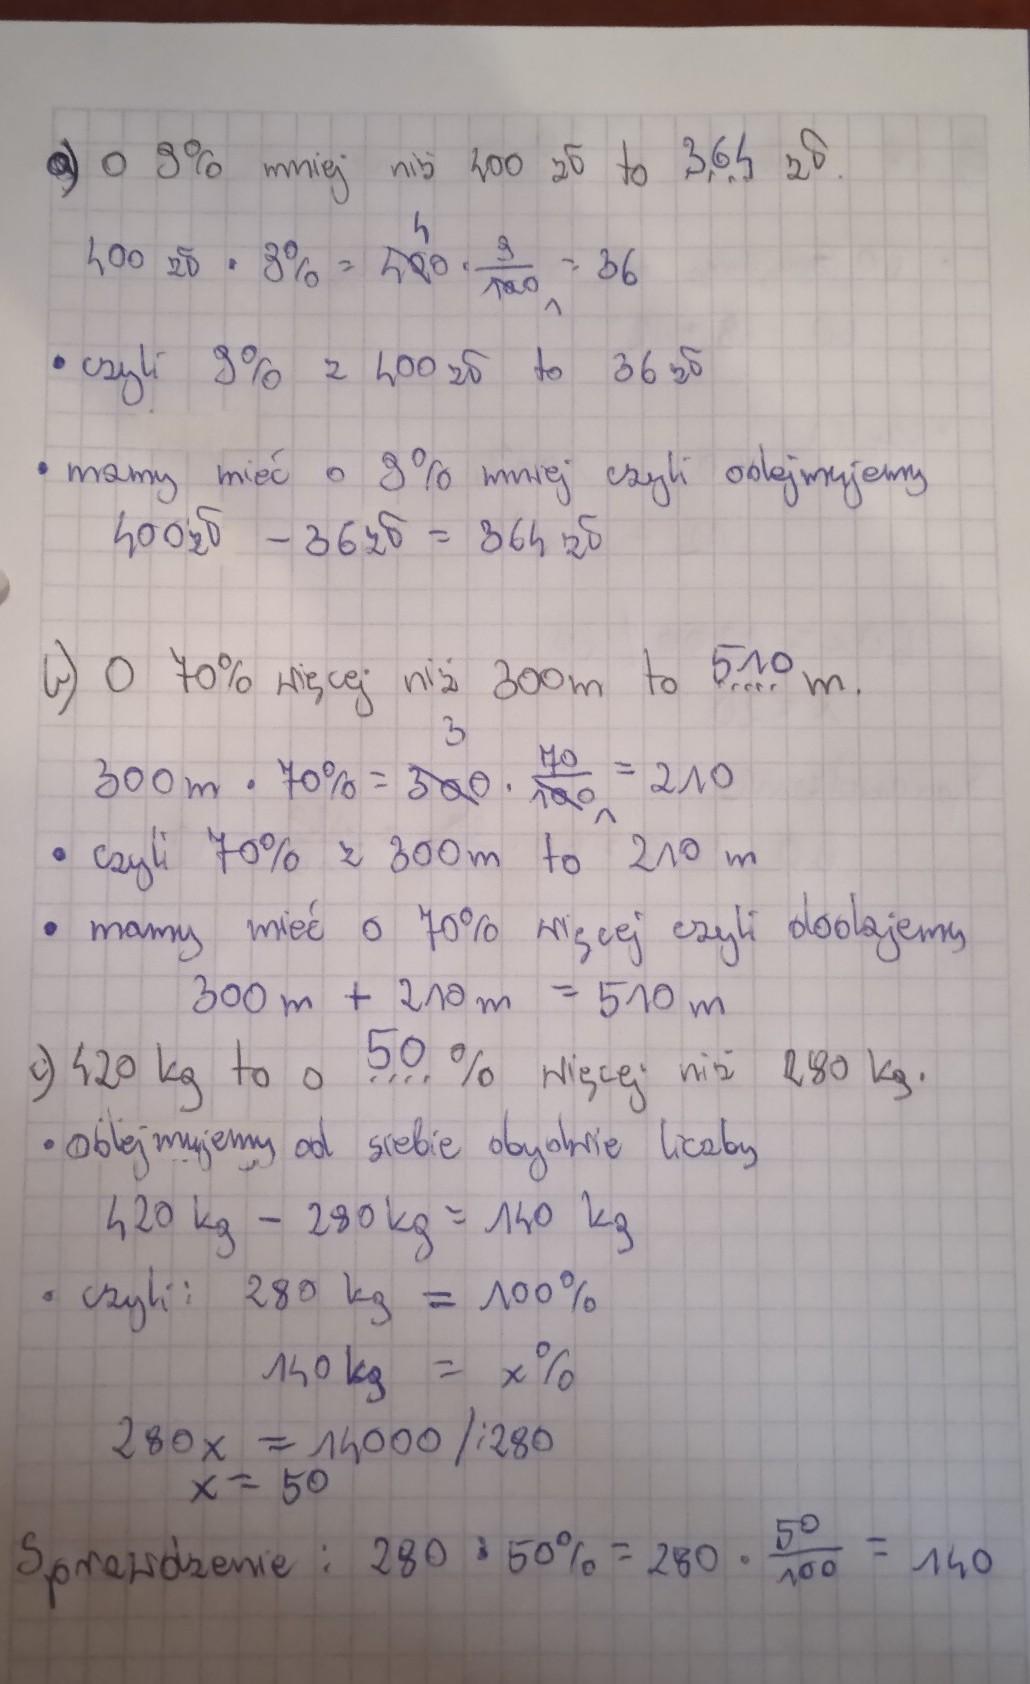 a) O 9% mniej niż 400 zł to 364 zł.
400 zł · 9% = 400 4 · 9/100 1 = 36
• czyli 9% z 400 zł to 36 zł
• mamy mieć o 9% mniej czyli odejmujemy
400 zł - 36 zł = 364 zł
b) O 70% więcej niż 300m to 510 m.
300 m · 70% = 300 3 · 70/100 1 = 210
• czyli 70% z 300m to 210 m
• mamy mieć o 70% więcej czyli dodajemy
300 m + 210 m = 510 m
c) 420 kg to o 50 % więcej niż 280 kg.
• odejmujemy od siebie obydwie liczby
420 kg - 280 kg = 140 kg
• czyli: 280 kg = 100%
140 kg = x%
280x = 14000 /:280
x = 50
Sprawdzenie : 280 · 50% = 280 · 50/100 = 140